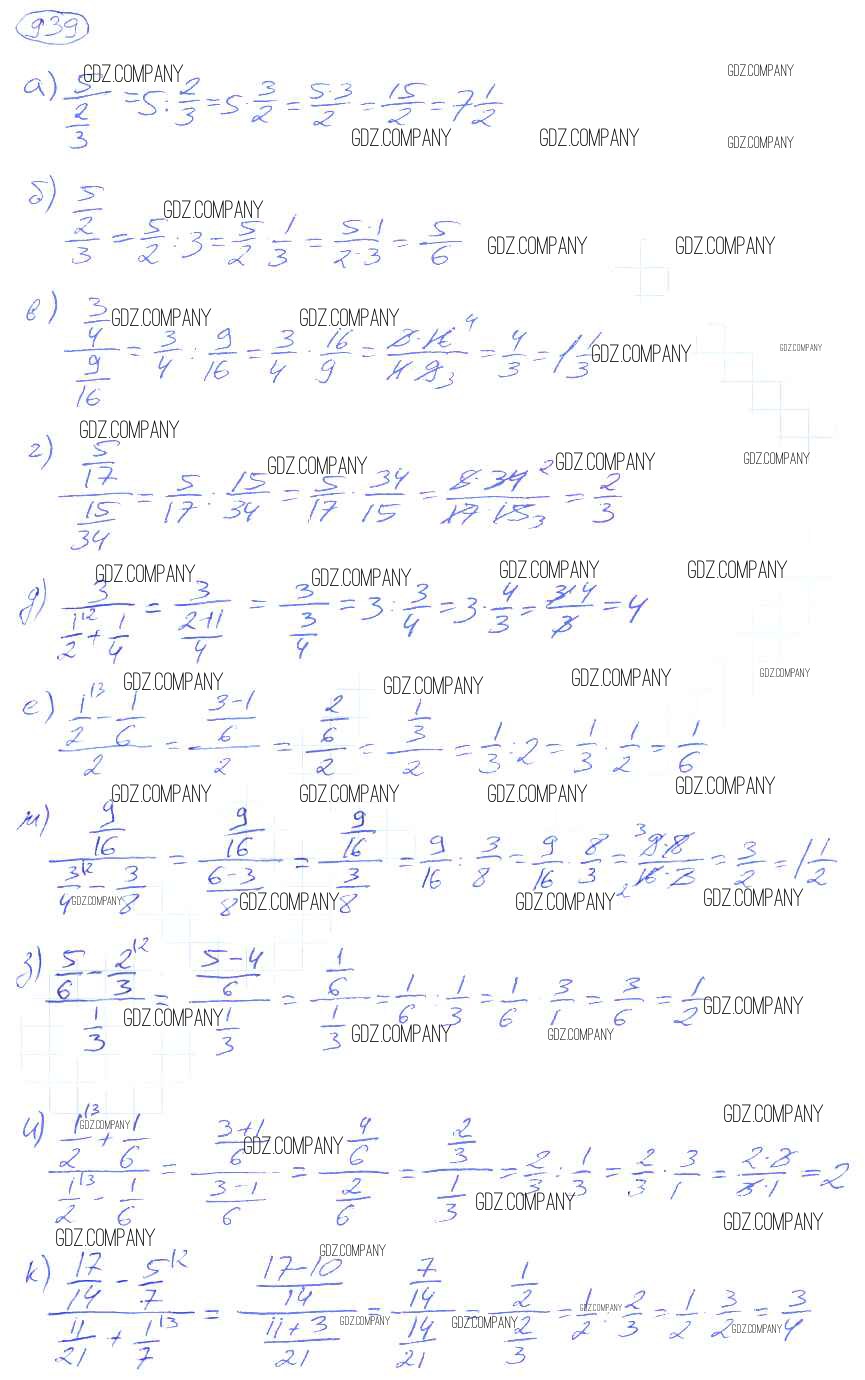 939
а) 5/(2/3) = 5 : 2/3 = 5 · 3/2 = 5·3/2 = 15/2 = 7 1/2
б) (5/2)/3 = 5/2 : 3 = 5/2 · 1/3 = 5·1/2·3 = 5/6
в) (3/4)/(9/16) = 3/4 : 9/16 = 3/4 · 16/9 = 3·16 4/4·9 3 = 4/3 = 1 1/3
г) (5/17)/(15/34) = 5/17 : 15/34 = 5/17 · 34/15 = 5·34 2/17·15 3 = 2/3
д) 3/(1/2 \2 + 1/4) = 3/((2+1)/4) = 3/(3/4) = 3 : 3/4 = 3 · 4/3 = 3·4/3 = 4
е) (1/2 \3 − 1/6)/2 = ((3−1)/6)/2 = (2/6)/2 = (1/3)/2 = 1/3 : 2 = 1/3 · 1/2 = 1/6
ж) (9/16)/(3/4 \2 − 3/8) = (9/16)/((6−3)/8) = (9/16)/(3/8) = 9/16 : 3/8 = 9/16 · 8/3 = 3 9·8/2 16·3 = 3/2 = 1 1/2
з) (5/6 − 2/3 \2)/(1/3) = ((5−4)/6)/(1/3) = (1/6)/(1/3) = 1/6 : 1/3 = 1/6 · 3/1 = 3/6 = 1/2
и) (1/2 \3 + 1/6)/(1/2 \3 − 1/6) = ((3+1)/6)/((3−1)/6) = (4/6)/(2/6) = (2/3)/(1/3) = 2/3 : 1/3 = 2/3 · 3/1 = 2·3/3·1 = 2
к) (17/14 − 5/7 \2)/(11/21 + 1/7 \3) = ((17−10)/14)/((11+3)/21) = (7/14)/(14/21) = (1/2)/(2/3) = 1/2 : 2/3 = 1/2 · 3/2 = 3/4
GDZ.COMPANY